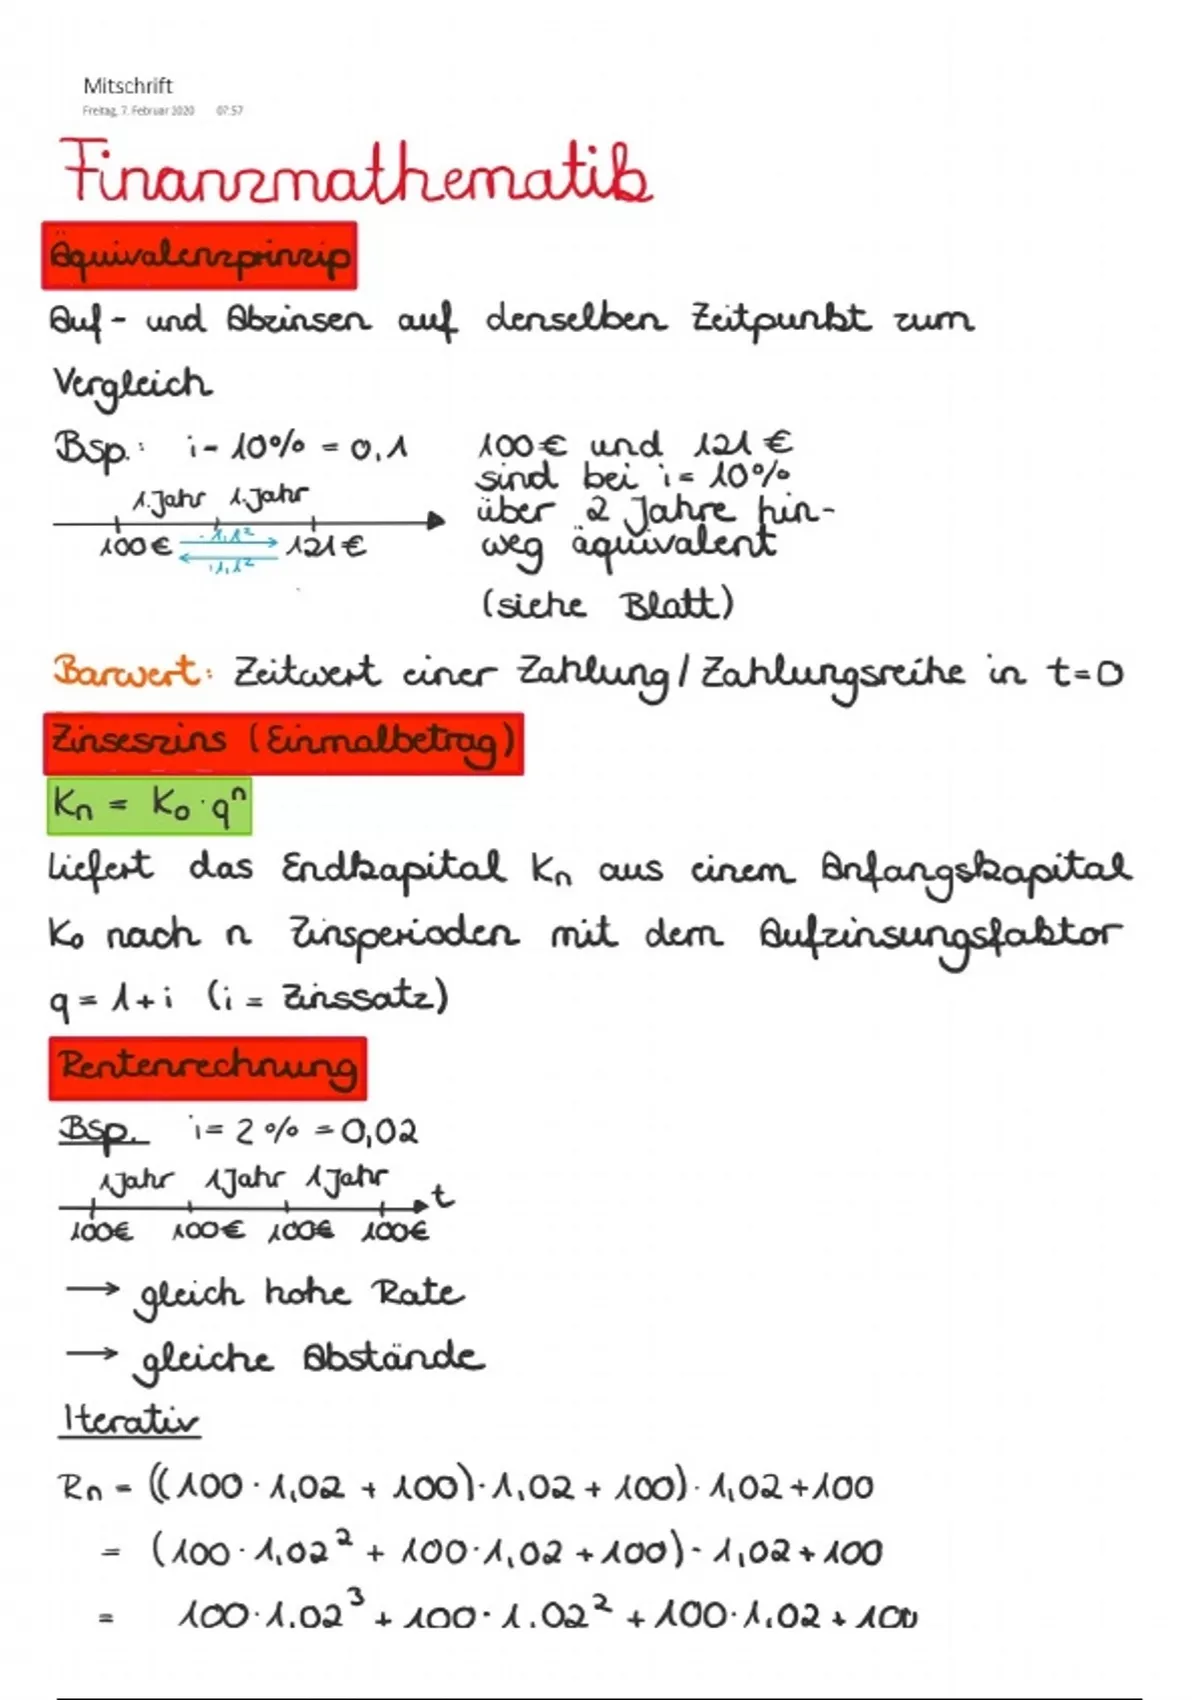 Mitschrift
Freitag, 7. Februar 2020 07:57
Finanzmathematik
Äquivalenzprinzip
Auf- und Abzinsen auf denselben Zeitpunkt zum
Vergleich
Bsp.: i = 10% = 0,1
1.Jahr 1.Jahr
100€ ·1,1² 121€
:1,1²
100€ und 121€
sind bei i = 10%
über 2 Jahre hin-
weg äquivalent
(siehe Blatt)
Barwert: Zeitwert einer Zahlung / Zahlungsreihe in t=0
Zinseszins (Einmalbetrag)
Kn = K₀ · qⁿ
Liefert das Endkapital Kn aus einem Anfangskapital
K₀ nach n Zinsperioden mit dem Aufzinsungsfaktor
q = 1+i (i = Zinssatz)
Rentenrechnung
Bsp. i = 2% = 0,02
1Jahr 1Jahr 1Jahr t
100€ 100€ 100€ 100€
→ gleich hohe Rate
→ gleiche Abstände
Iterativ
Rn = ((100 · 1,02 + 100) · 1,02 + 100) · 1,02 + 100
= (100 · 1,02² + 100 · 1,02 + 100) · 1,02 + 100
= 100 · 1.02³ + 100 · 1.02² + 100 · 1.02 + 100